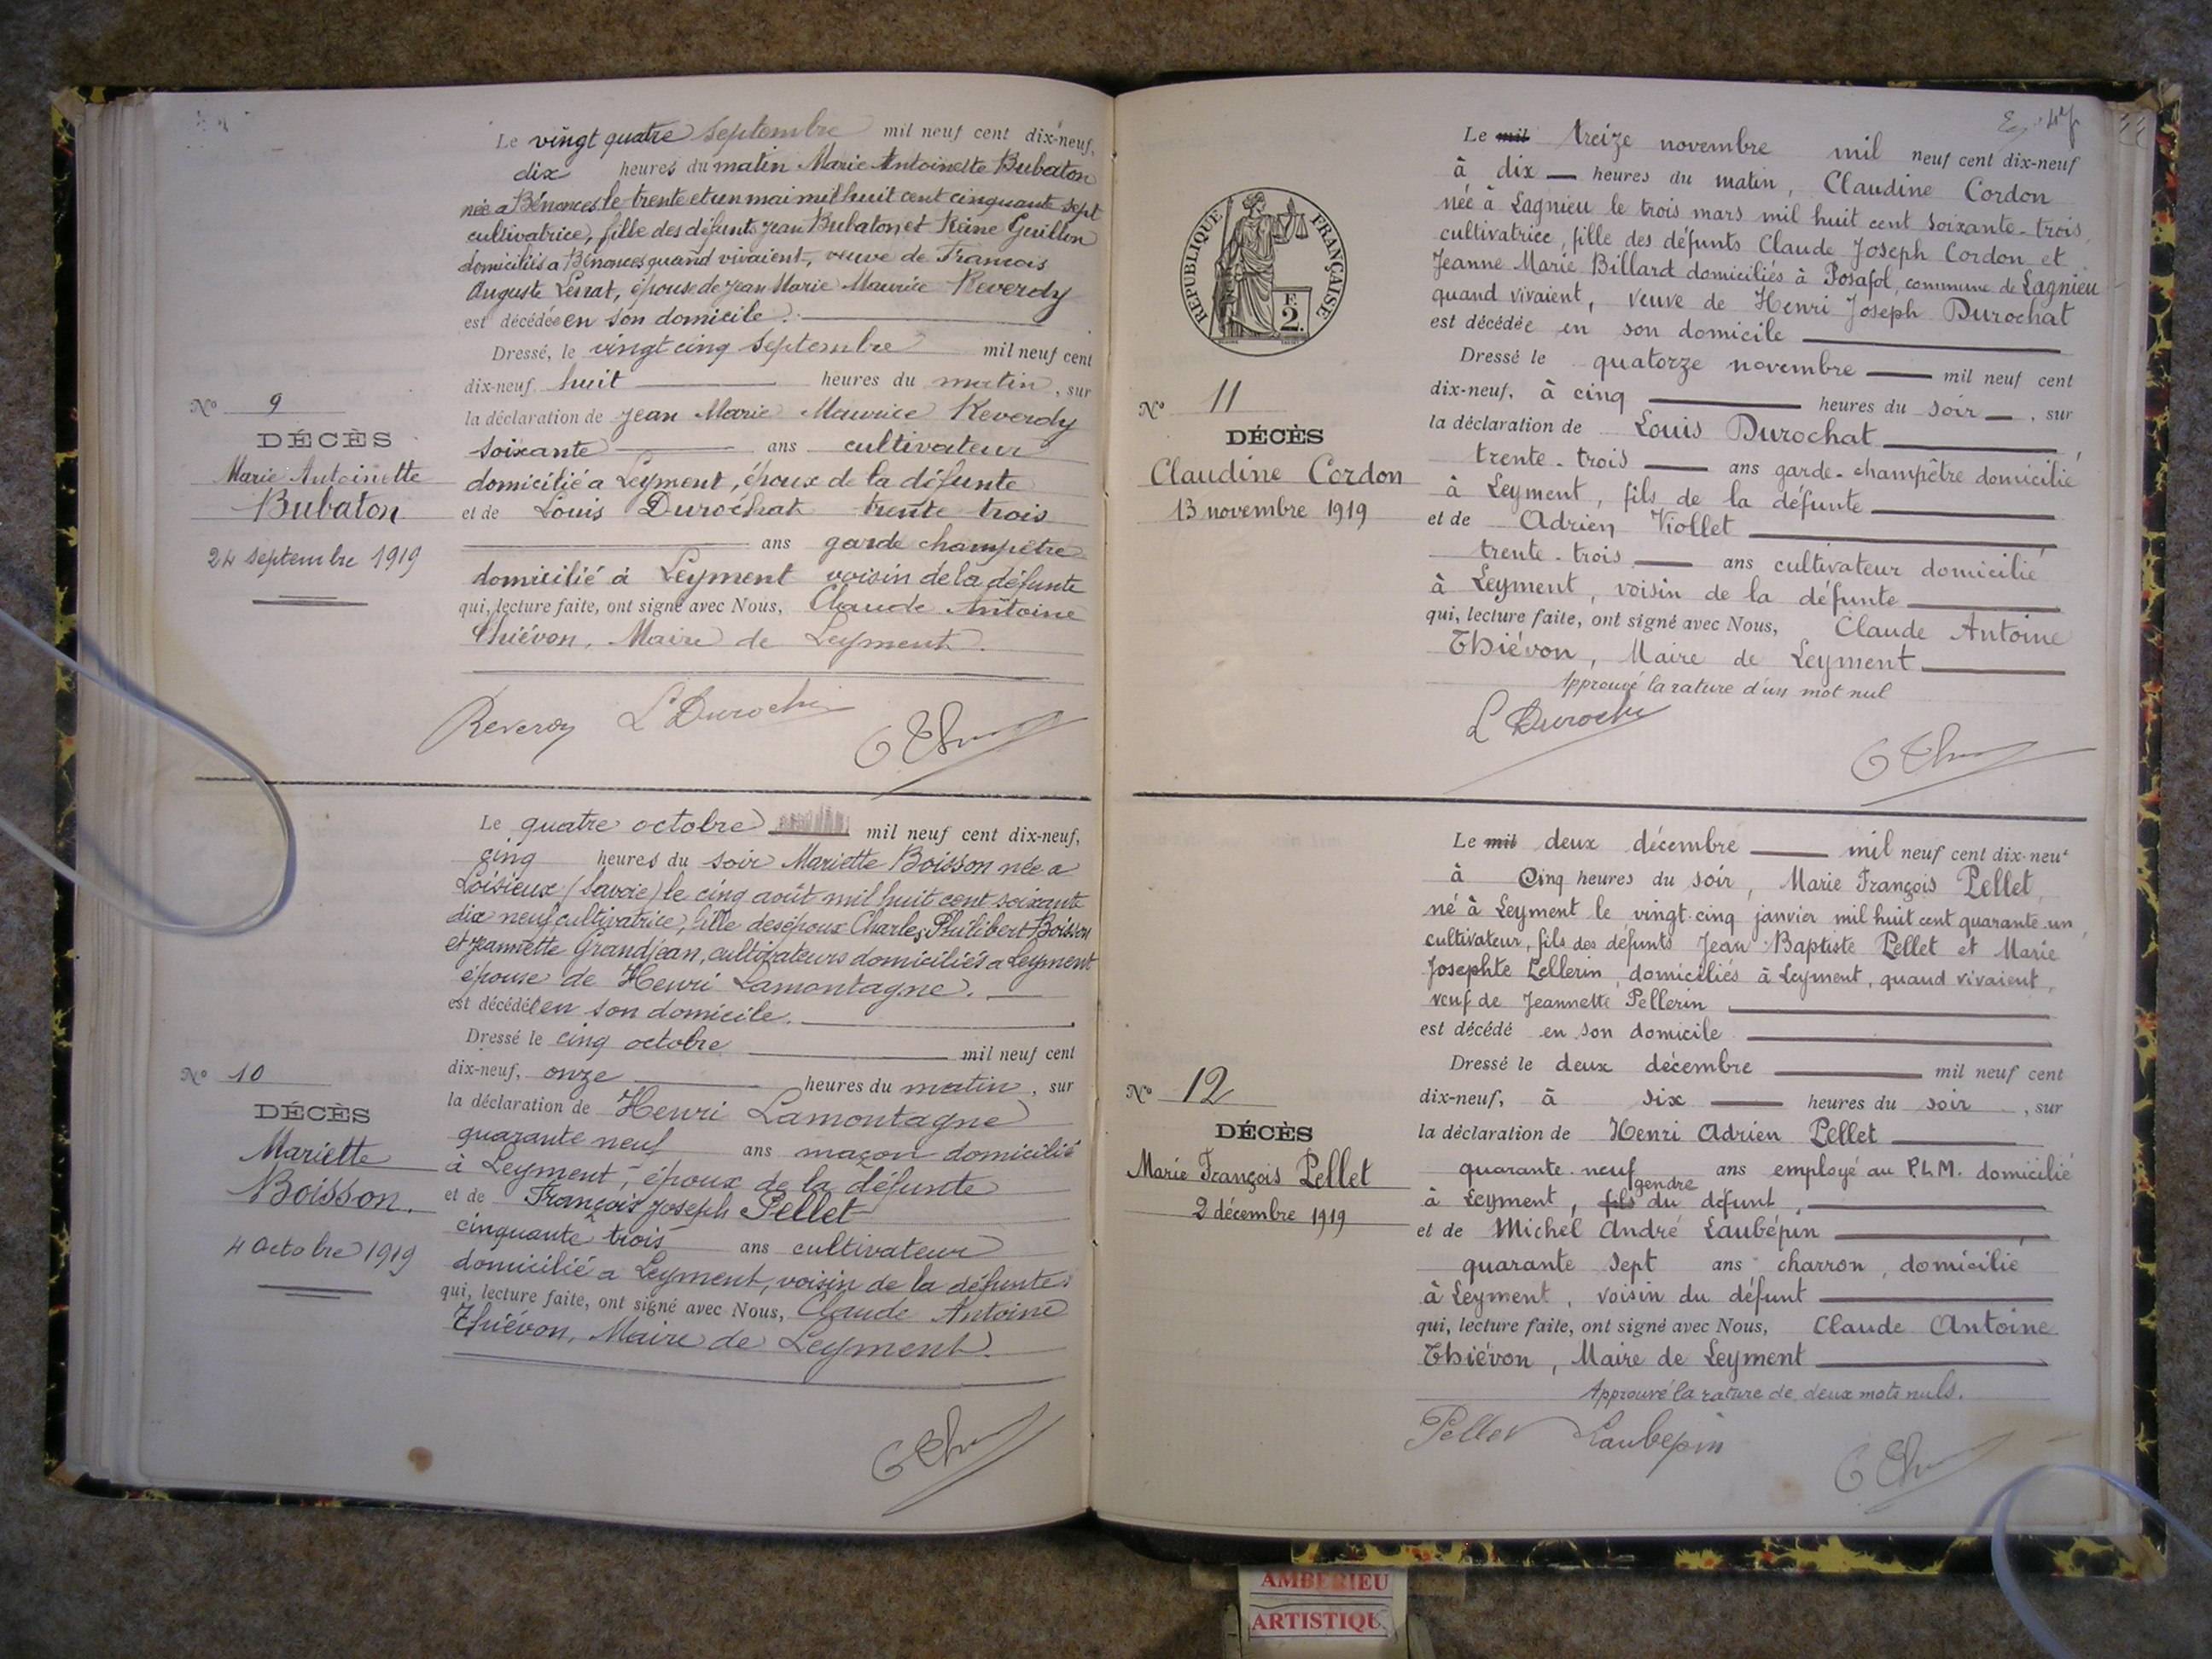 Le vingt quatre septembre mil neuf cent dix-neuf,
dix heures du matin Marie Antoinette Bubaton
née a Bénonces le trente et un mai mil huit cent cinquante sept
cultivatrice, fille des défunts Jean Bubaton et Reine Guillon
domiciliés a Bénonces quand vivaient, veuve de Francois
Auguste épouse de Jean Marie Maurice Reverdy
est décédée en son domicile.
Dressé, le vingt cinq septembre mil neuf cent
dix-neuf huit heures du matin, sur
la déclaration de Jean Marie Maurice Reverdy
soixante ans cultivateur
domicilié a Leyment, époux de la défunte
et de Louis Durochat trente trois
ans garde champêtre
domicilié à Leyment voisin de la défunte
qui, lecture faite, ont signé avec Nous, Claude Antoine
Thiévon, Maire de Leyment.
Nº 9
DÉCÈS
Marie Antoinette
Bubaton
24 septembre 1919
Reverdy L Durochat
Le quatre octobre mil neuf cent dix-neuf,
cinq heures du soir Mariette Boisson née a
Loisieux (Savoie) le cinq août mil huit cent soixante
dix neuf cultivatrice, fille des époux Charles Philibert Boisson
et Jeannette Grandjean, cultivateurs domiciliés a Leyment
épouse de Henri Lamontagne.
est décédée en son domicile.
Dressé le cinq octobre mil neuf cent
dix-neuf, onze heures du matin, sur
la déclaration de Henri Lamontagne
quarante neuf ans maçon domicilié
à Leyment, époux de la défunte
et de François Joseph Pellet
cinquante trois ans cultivateur
domicilié a Leyment, voisin de la défunte
qui, lecture faite, ont signé avec Nous, Claude Antoine
Thiévon, Maire de Leyment.
Nº 10
DÉCÈS
Mariette
Boisson.
4 Octobre 1919
RÉPUBLIQUE FRANÇAISE
F.
2.
Le mil treize novembre mil neuf cent dix-neuf
à dix heures du matin, Claudine Cordon
née à Lagnieu le trois mars mil huit cent soixante-trois,
cultivatrice, fille des défunts Claude Joseph Cordon et
Jeanne Marie Billard domiciliés à Posafol, commune de Lagnieu
quand vivaient, veuve de Henri Joseph Durochat
est décédée en son domicile
Dressé le quatorze novembre mil neuf cent
dix-neuf, à cinq heures du soir, sur
la déclaration de Louis Durochat,
trente-trois ans garde-champêtre domicilié
à Leyment, fils de la défunte
et de Adrien Viollet
trente-trois ans cultivateur domicilié
à Leyment, voisin de la défunte
qui, lecture faite, ont signé avec Nous, Claude Antoine
Thiévon, Maire de Leyment
Approuvé la rature d'un mot nul
Nº 11
DÉCÈS
Claudine Cordon
13 novembre 1919
L Durochat
Le mil deux décembre mil neuf cent dix-neuf
à Cinq heures du soir, Marie François Pellet,
né à Leyment le vingt-cinq janvier mil huit cent quarante-un,
cultivateur, fils des défunts Jean Baptiste Pellet et Marie
Josephte Pellerin, domiciliés à Leyment, quand vivaient,
veuf de Jeannette Pellerin
est décédé en son domicile
Dressé le deux décembre mil neuf cent
dix-neuf, à six heures du soir, sur
la déclaration de Henri Adrien Pellet
quarante-neuf ans employé au P.L.M. domicilié
à Leyment, fils gendre du défunt,
et de Michel André Laubépin,
quarante sept ans charron, domicilié
à Leyment, voisin du défunt
qui, lecture faite, ont signé avec Nous, Claude Antoine
Thiévon, Maire de Leyment
Approuvé la rature de deux mots nuls.
Nº 12
DÉCÈS
Marie François Pellet
2 décembre 1919
Pellet Laubepin
AMBERIEU
ARTISTIQU